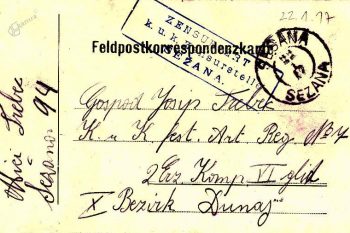 22.1.17
ZENSURIERT
k.u.k. Zensurstelle
SEŽANA.
Feldpostkorrespondenzkarte
SEŽANA
SEŽANA
Gospod Josip Trebec
K u K fest. Art Reg. No 4
2 Erz Komp. VI glid
X Bezirk Dunaj
Trebec
Sežana 94